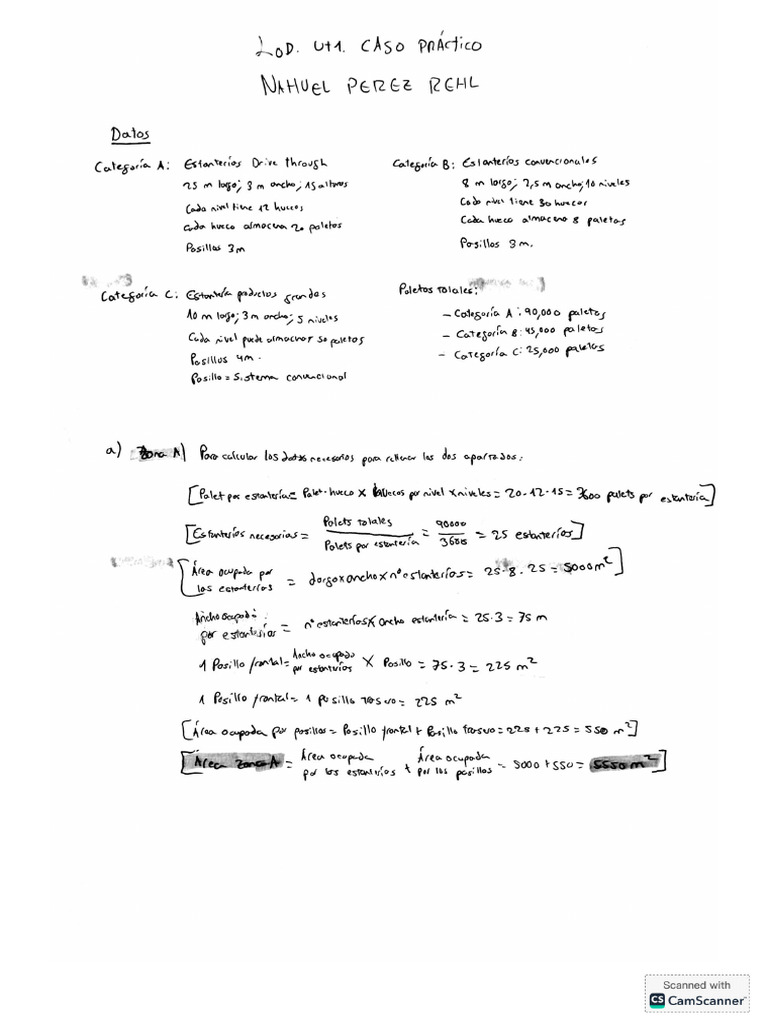 LOD. UT1. CASO PRÁCTICO
NAHUEL PEREZ REHL
Datos
Categoría A: Estanterías Drive through
25 m largo; 3 m ancho; 15 alturas
Cada nivel tiene 12 huecos
cada hueco almacena 20 paletos
Pasillos 3 m
Categoría B: Estanterías convencionales
8 m largo; 2,5 m ancho; 10 niveles
Cada nivel tiene 30 huecos
Cada hueco almacena 8 paletas
Pasillos 3 m.
Categoría C: Estantería productos grandes
10 m largo; 3 m ancho; 5 niveles
Cada nivel puede almacenar 50 paletas
Pasillos 4m.
Pasillo = Sistema convencional
Paletas totales:
- Categoría A: 90,000 paletas
- Categoría B: 45,000 paletas
- Categoría C: 25,000 paletas
a) Zona A) Para calcular los datos necesarios para rellenar los dos apartados:
[Palet por estantería = Palet·hueco x Huecos por nivel x niveles = 20·12·15 = 3600 palets por estantería]
[Estanterías necesarias = Palets totales / Palets por estantería = 90000 / 3600 = 25 estanterías]
[Área ocupada por las estanterías = largo x ancho x nº estanterías = 25·8·25 = 5000 m²]
Ancho ocupado por estanterías = nº estanterías x ancho estantería = 25·3 = 75 m
1 Pasillo frontal = Ancho ocupado por estanterías x Pasillo = 75·3 = 225 m²
1 Pasillo frontal = 1 pasillo trasero = 225 m²
[Área ocupada por pasillos = Pasillo frontal + Pasillo trasero = 225 + 225 = 550 m²]
[Área Zona A = Área ocupada por las estanterías + Área ocupada por los pasillos = 5000 + 550 = 5550 m²]
Scanned with
CS CamScanner